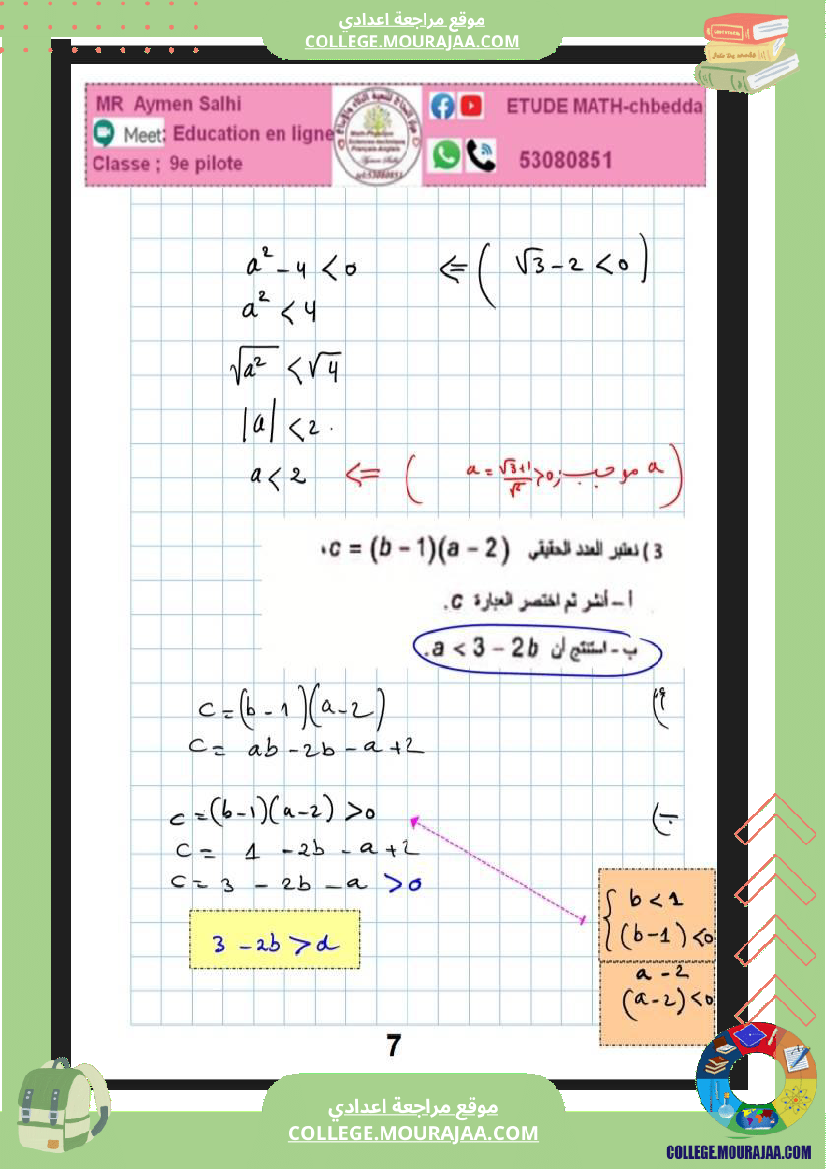 موقع مراجعة اعدادي
COLLEGE.MOURAJAA.COM
MR Aymen Salhi
Meet: Education en ligne
Classe ; 9e pilote
ETUDE MATH-chbedda
53080851
a² - 4 < 0 <= ( √3 - 2 < 0 )
a² < 4
√a² < √4
|a| < 2.
a < 2 <= ( a = (√3+1)/√2 > 0 ; موجب a )
3 ) نعتبر العدد الحقيقي c = (b − 1)(a − 2)،
أ – أنشر ثم اختصر العبارة c.
ب - استنتج أن a < 3 − 2b.
أ)
c = (b - 1)(a - 2)
c = ab - 2b - a + 2
ب)
c = (b-1)(a-2) > 0
c = 1 - 2b - a + 2
c = 3 - 2b - a > 0
3 - 2b > a
b < 1
(b-1) < 0
a - 2
(a-2) < 0
7
موقع مراجعة اعدادي
COLLEGE.MOURAJAA.COM
COLLEGE.MOURAJAA.COM